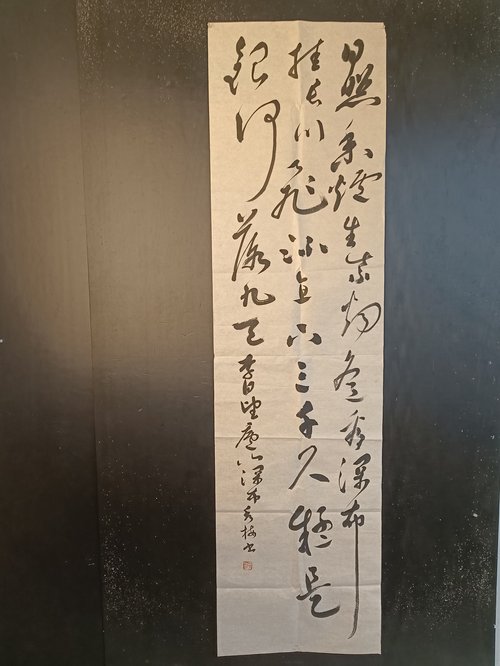 日照香爐生紫烟遥看瀑布
挂长川飛流直下三千尺疑是
銀河落九天李白望廬山瀑布书